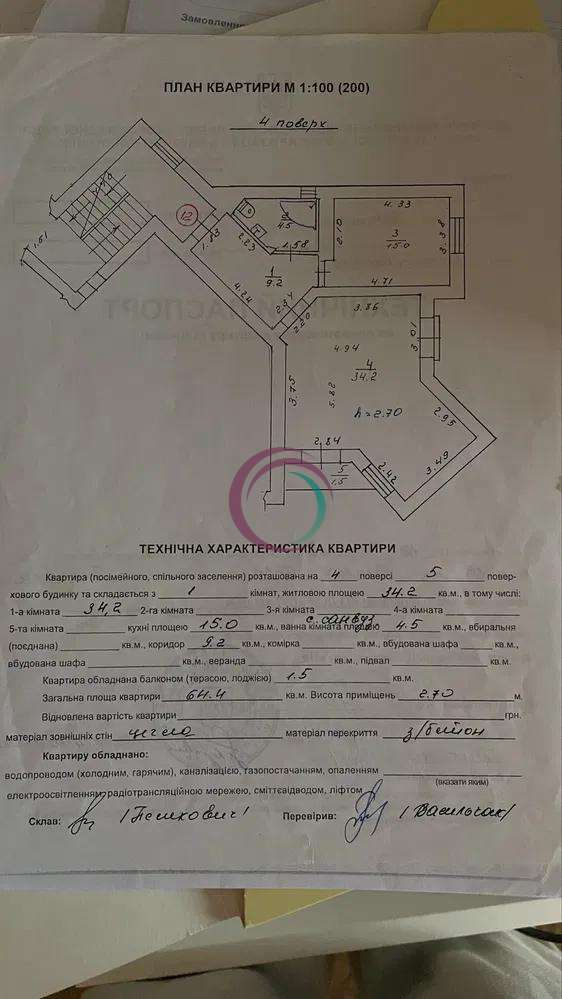 Замовлення
ПЛАН КВАРТИРИ М 1:100 (200)
4 поверх
1.51
12
1.53
2.23
2
4.5
1.58
4.33
2.10
3
15.0
3.38
4.71
1
9.2
4.24
3.86
3.01
4.94
4
34.2
3.75
5.82
h=2.70
2.95
3.49
2.84
2.42
5
1.5
ТЕХНІЧНА ХАРАКТЕРИСТИКА КВАРТИРИ
Квартира (посімейного, спільного заселення) розташована на 4 поверсі 5 повер-
хового будинку та складається з 1 кімнат, житловою площею 34.2 кв.м., в тому числі:
1-а кімната 34,2 2-га кімната 3-я кімната 4-а кімната
5-та кімната кухні площею 15.0 кв.м., ванна кімната площею 4.5 кв.м., вбиральня
(поєднана) кв.м., коридор 9.2 кв.м., комірка кв.м., вбудована шафа кв.м.,
вбудована шафа кв.м., веранда кв.м., підвал кв.м.
Квартира обладнана балконом (терасою, лоджією) 1.5 кв.м.
Загальна площа квартири 64.4 кв.м. Висота приміщень 2.70 м.
Відновлена вартість квартири грн.
матеріал зовнішніх стін цегла матеріал перекриття з/бетон
Квартиру обладнано:
водопроводом (холодним, гарячим), каналізацією, газопостачанням, опаленням
(вказати яким)
електроосвітленням, радіотрансляційною мережею, сміттєвідводом, ліфтом
Склав: /Пешкович/ Перевірив: /Васильчак/